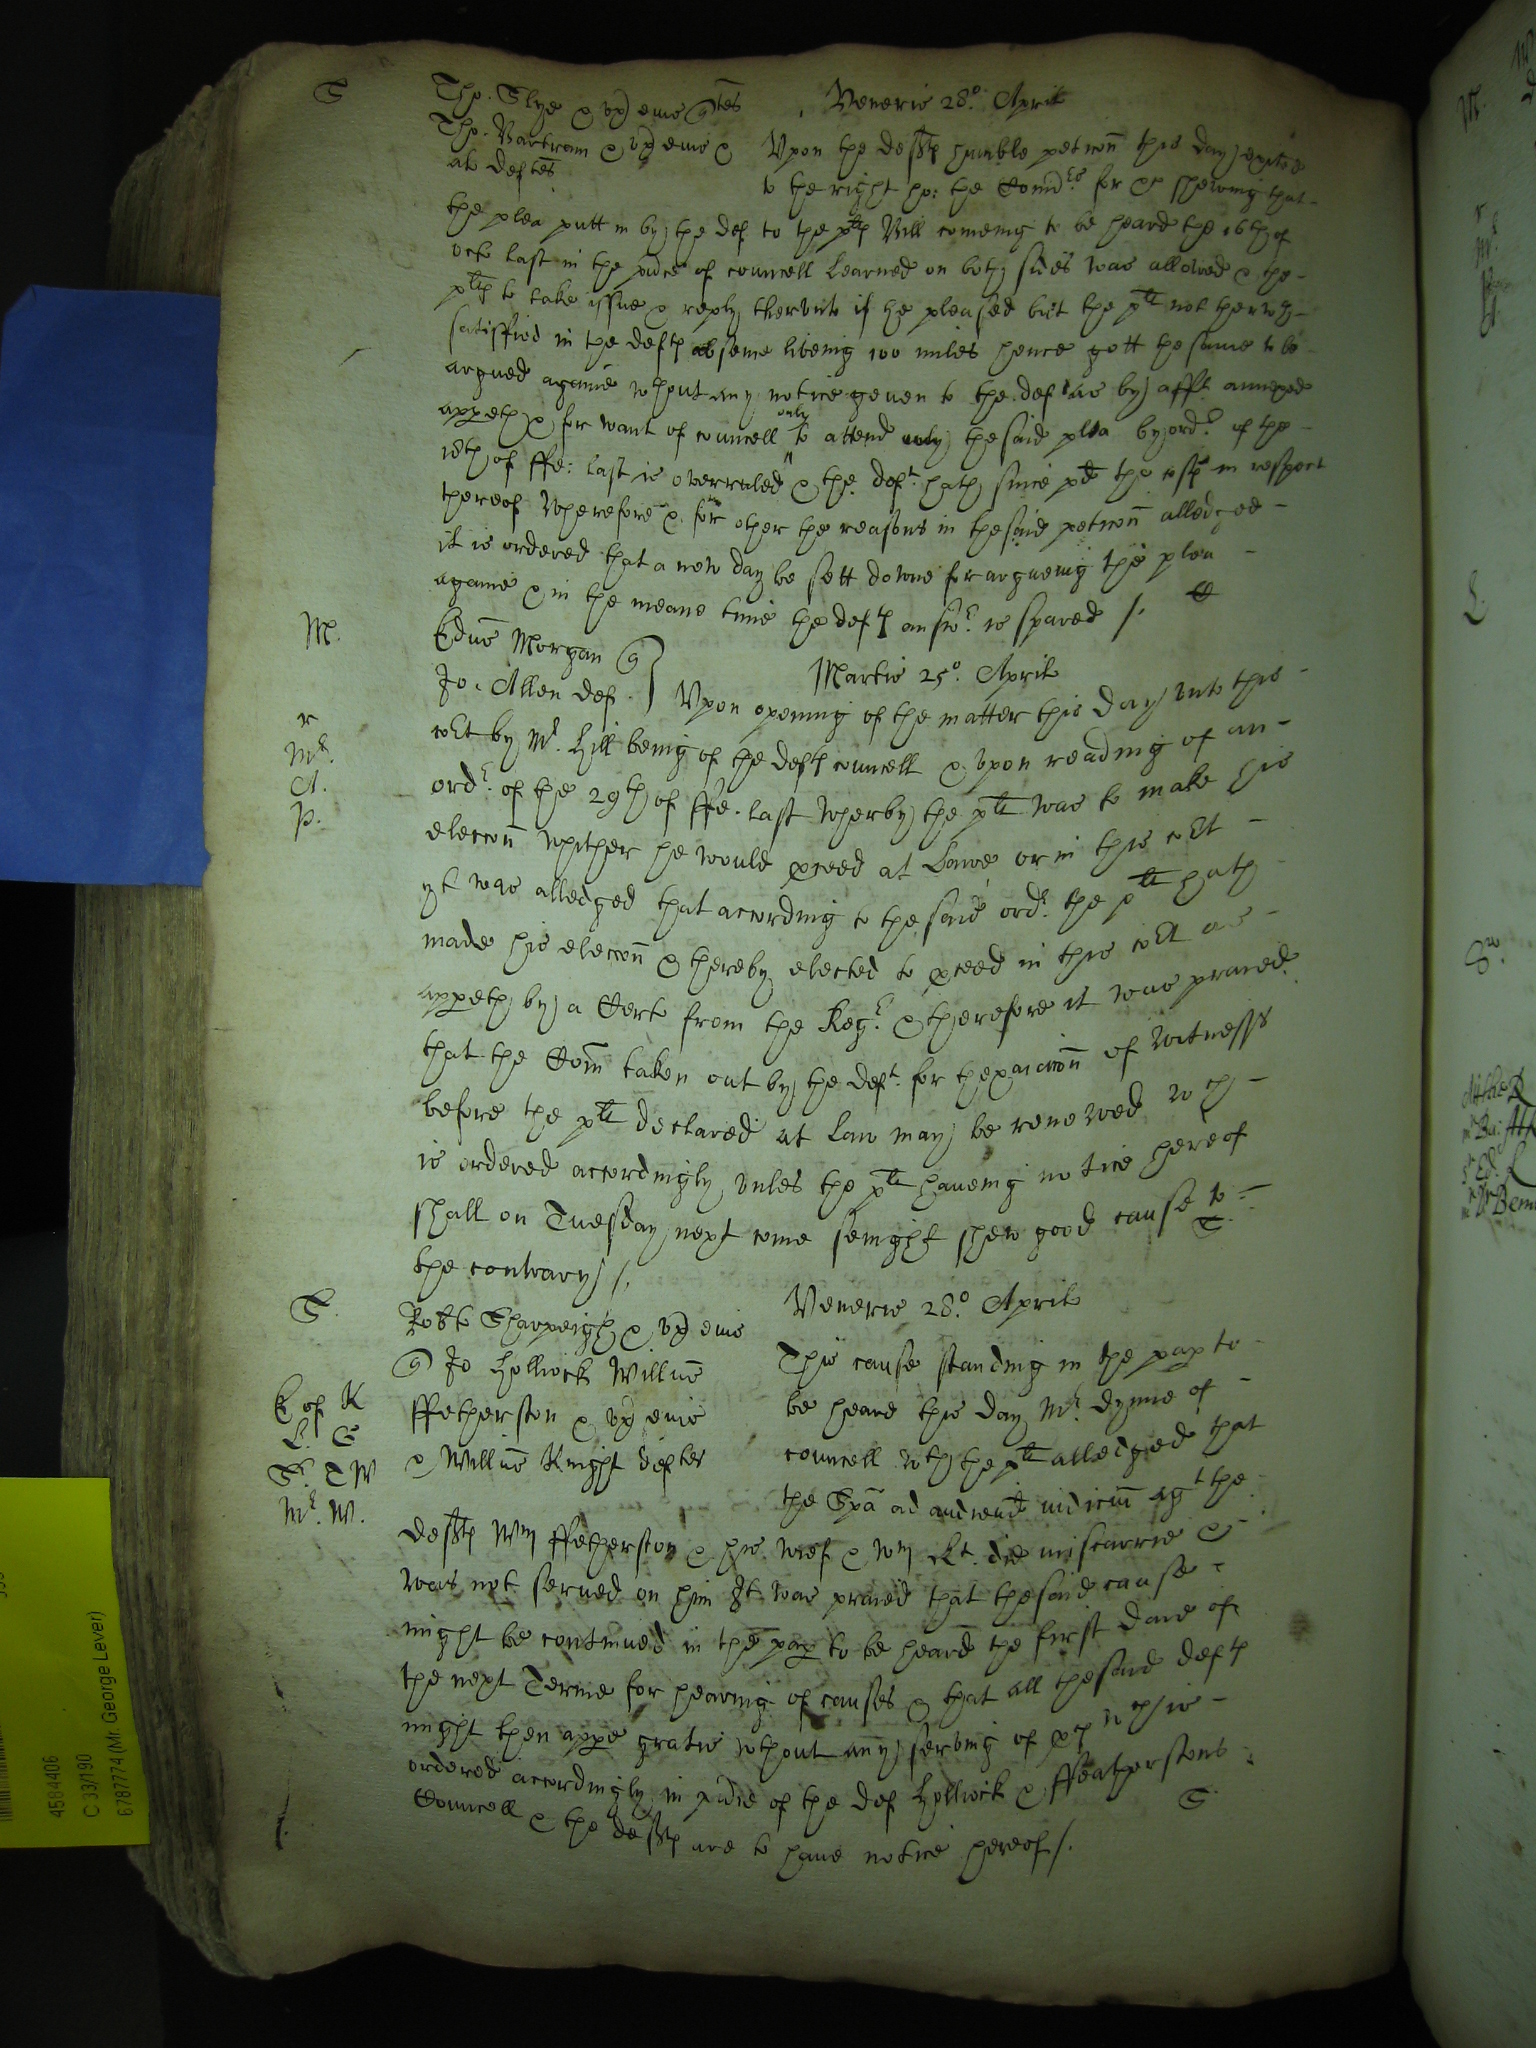 S
Tho. Slye & ux eius quer^tes
Veneris 28°. April
Tho. Bartram & ux eius &
al deftes
Upon the def^ts humble peticon this day exited
to the right ho: the Comd^rs for &c shewing that
the plea putt in by the def to the p^lts Bill comeing to be heard the 16th of
Octo last in the p^rnce of councell learned on both sides was allowed & the
p^lts to take issue & reply therunto if he pleased but the p^lt not therw^th
satisffied in the defts absence liveing 100 miles hence gott the same to be
argued againe w^thout any notice geven to the def as by aff^t annexed
appeth & for want of councell only to attend the said plea by ord^r of the
18th of ffe: last is overruled & the def^t hath since p^d the costs in respect
thereof Wherefore & for other the reasons in the said peticon alledged
it is ordered that a new day be sett downe for argueing the plea
againe & in the meane time the defts answ^r is spared /.
M.
Edus Morgan q
Martis 25°. April
Jo. Allen def.
Upon opening of the matter this day unto this
r
M^r.
A.
P.
co^rt by M^r. Hill being of the defts councell & upon reading of an
ord^r. of the 29th of ffe. last wherby the p^lt was to make his
eleccon whither he would pceed at Lawe or in this co^rt
yt was alledged that according to the said ord^r. the p^lt hath
made his eleccon & thereby elected to pceed in this co^rt as
appeth by a Cert from the Reg^r. & therefore it was praied
that the Com taken out by the def^t. for thexaicon of witnesss
before the p^lt declared at Law may be renewed w^ch
is ordered accordingly unles the p^lt haveing notice hereof
shall on Tuesday next come senight shew good cause to
the contrary /.
S.
Veneris 28°. April
Robt Sharpeigh & ux eius
q Jo Hollock Willus
ffetherston & ux eius
& Willus Knight deftes
E of K
L. S
S^r. T W
M^r. W.
This cause standing in the pap to
be heard this day M^r. Dynne of
councell w^th the p^lt alledged that
the Spa ad audiend iudiciu ag^t the
defts Wm ffetherston & his wief & Wm Kt. did miscarrie &
was not served on him It was praied that the said cause
might be continued in the pap to be heard the first daie of
the next Terme for hearing of causes & that all the said defts
might then appe gratis w^thout any serving of pces w^ch is
ordered accordingly in p^rnce of the def Hollock & ffeatherstons
Councell & the defts are to have notice hereof /.
S.
4584406
C 33/190
6787774 (Mr. George Lever)